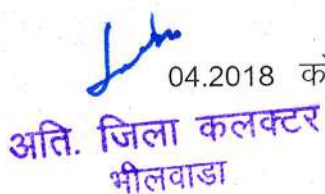 04.2018 को
अति. जिला कलक्टर
भीलवाडा